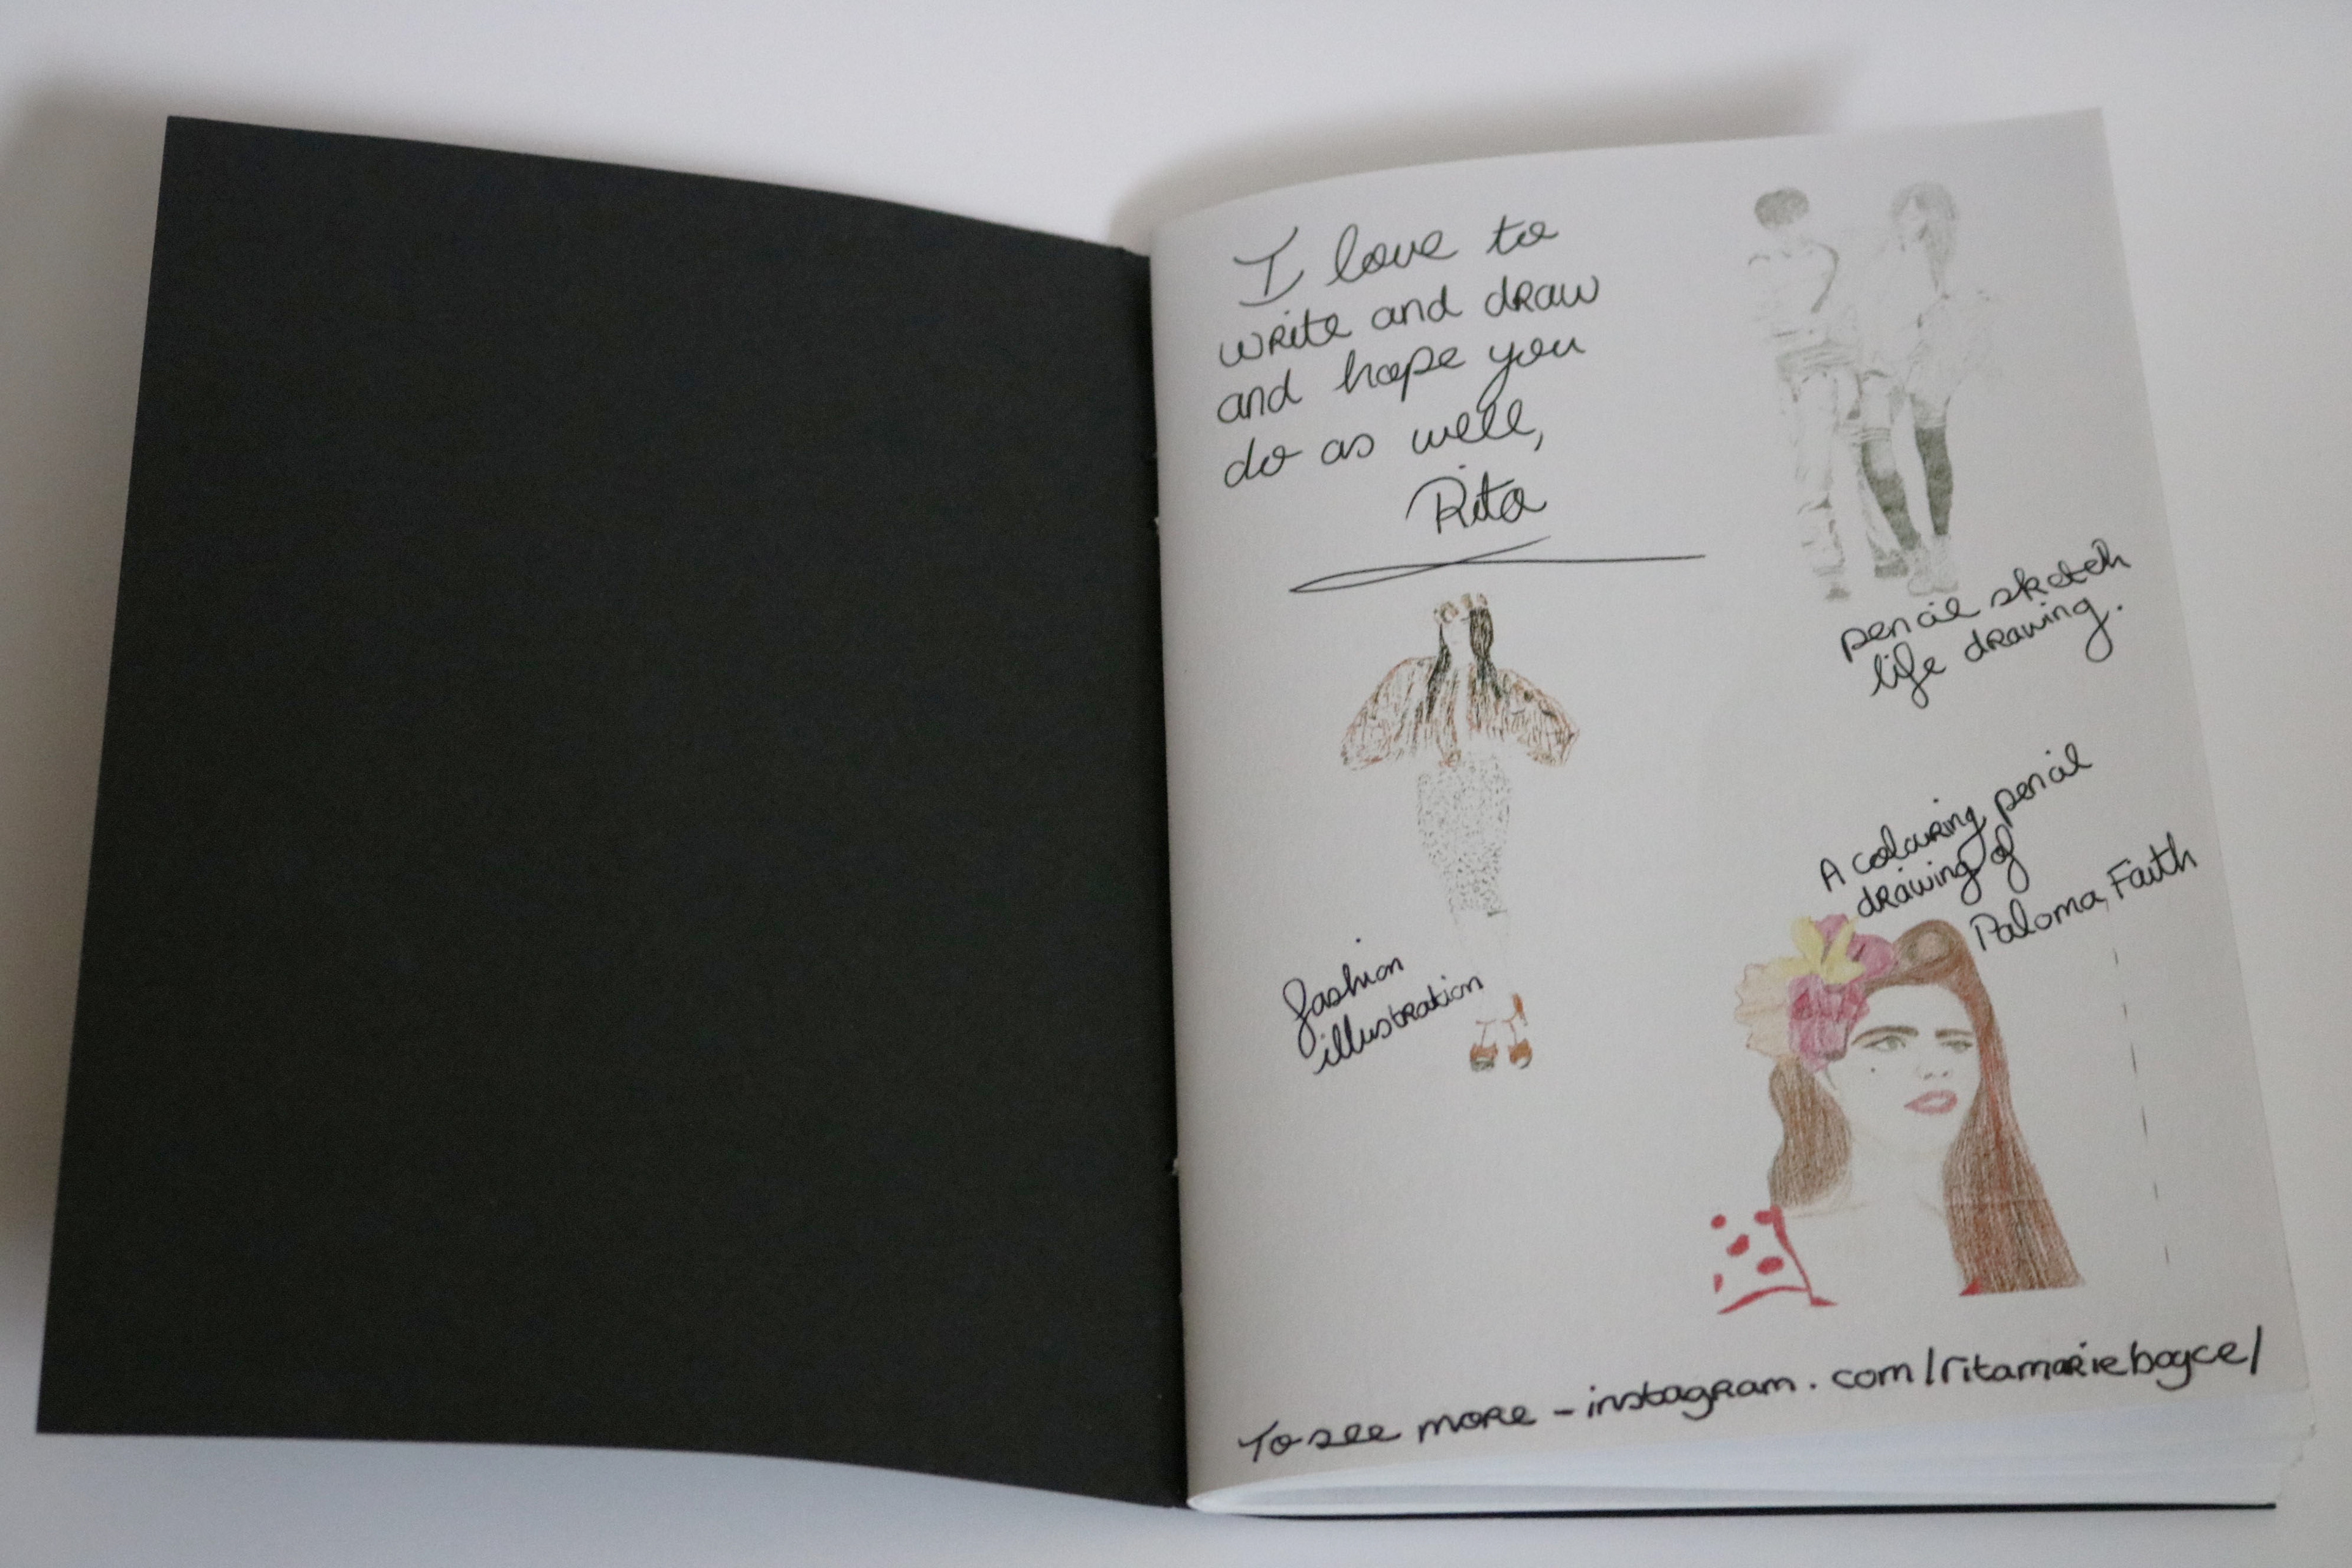 I love to
write and draw
and hope you
do as well,
Rita
pencil sketch
life drawing.
fashion
illustration
A colouring pencil
drawing of
Paloma Faith
To see more - instagram.com/ritamarieboyce/